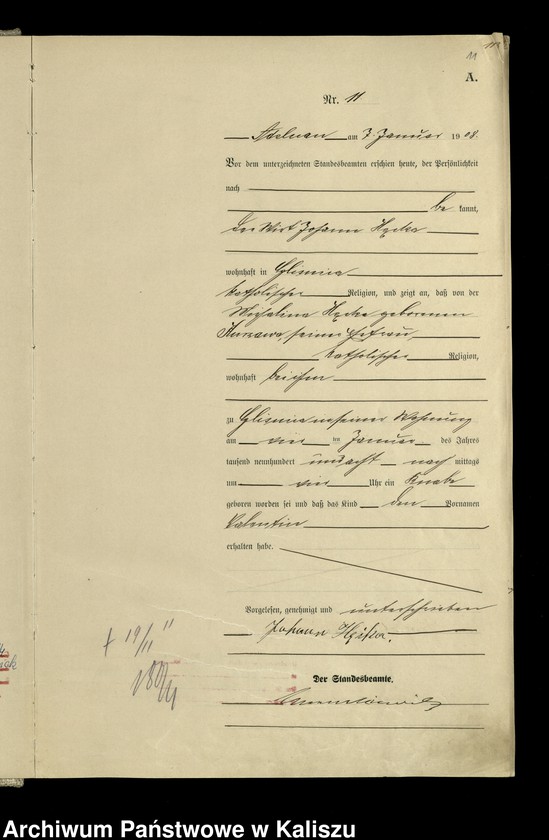 11
A.
Nr. 11
Adelnau am 7. Januar 1908.
Vor dem unterzeichneten Standesbeamten erschien heute, der Persönlichkeit
nach
be kannt,
der Wirt Johann
wohnhaft in Glisnica
katholischer Religion, und zeigt an, daß von der
geborenen
seiner Ehefrau,
katholischer Religion,
wohnhaft bei ihm
zu Glisnica in seiner Wohnung
am vier ten Januar des Jahres
tausend neunhundert und acht nach mittags
um vier Uhr ein Knabe
geboren worden sei und daß das Kind den Vornamen
Valentin
erhalten habe.
Vorgelesen, genehmigt und unterschrieben
Johann
Der Standesbeamte.
+ 19/11 11
Archiwum Państwowe w Kaliszu